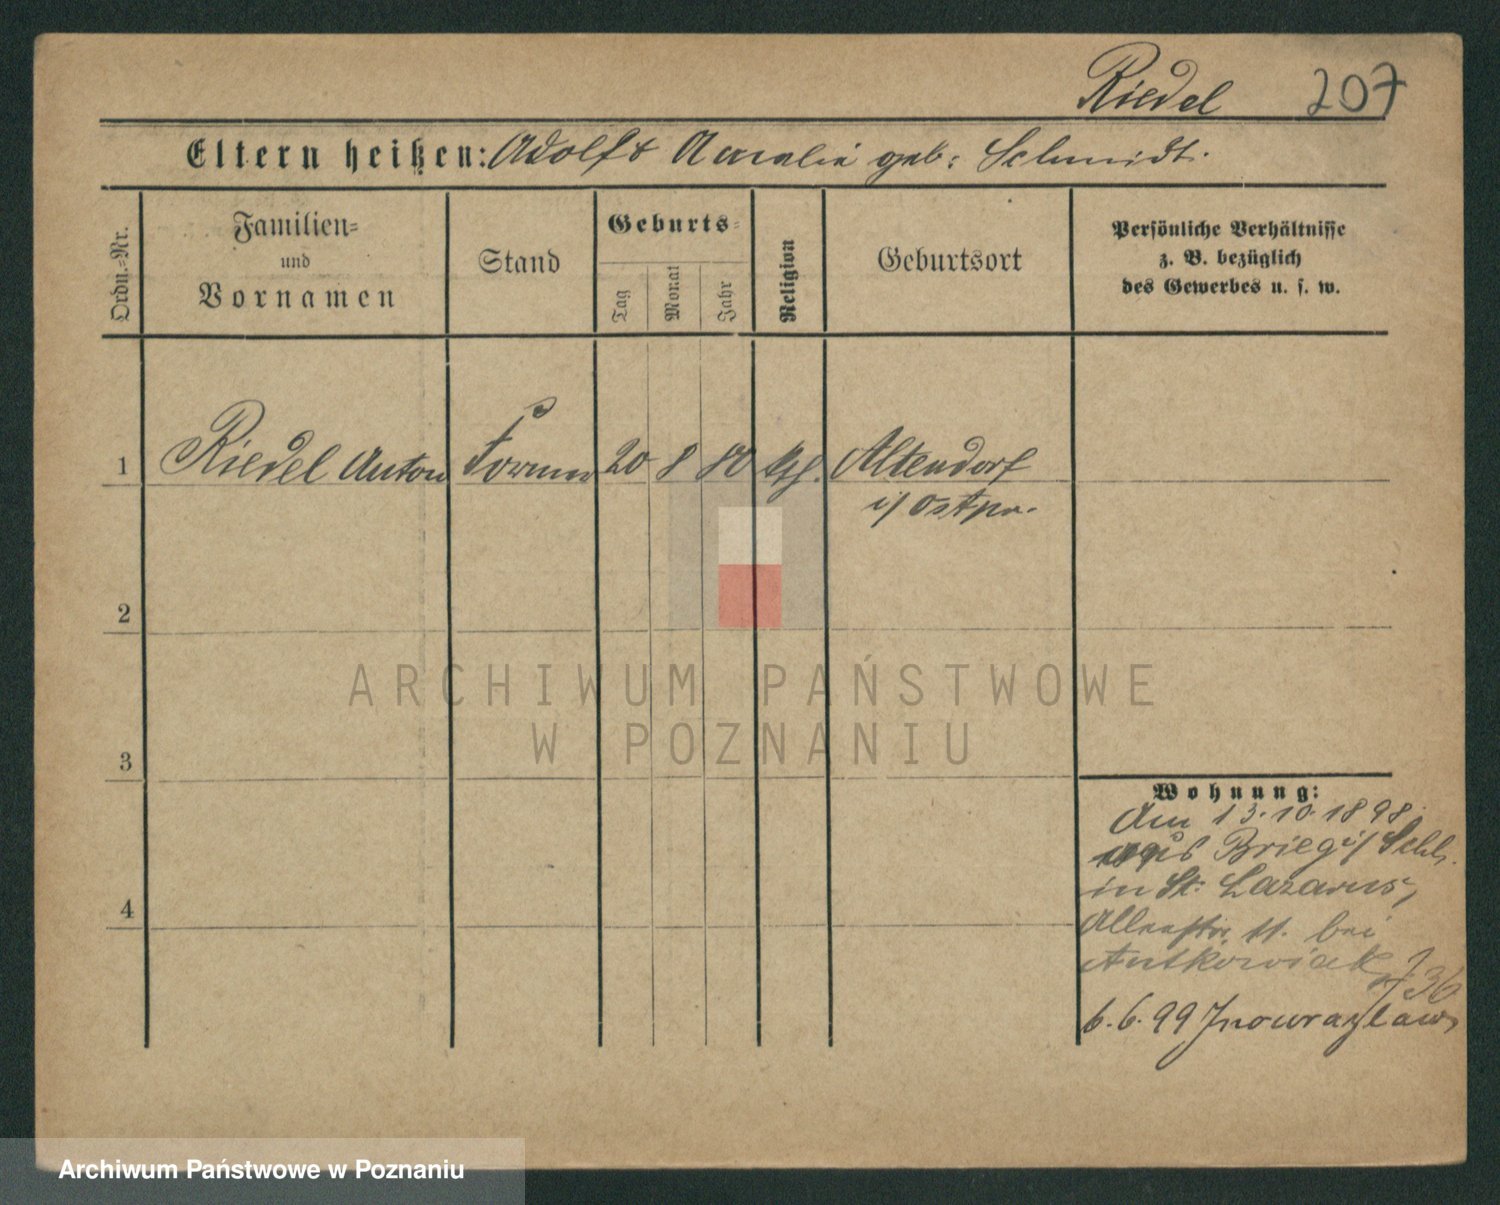 Riedel 207
Eltern heißen: Adolf & Amalie geb: Schmidt.
Ordn.-Nr.
Familien-
und
Vornamen
Stand
Geburts-
Tag
Monat
Jahr
Religion
Geburtsort
Persönliche Verhältnisse
z. B. bezüglich
des Gewerbes u. s. w.
1 Riedel Anton Former 20 8 80 kth. Altendorf
i/ Ostpr.
2
3
4
ARCHIWUM PAŃSTWOWE
W POZNANIU
Wohnung:
Am 13.10.1898
aus Brieg i/ Schl.
in St. Lazarus,
Allenstr. 11. bei
Antkowiak
736
6.6.99 Inowrazlaw
Archiwum Państwowe w Poznaniu